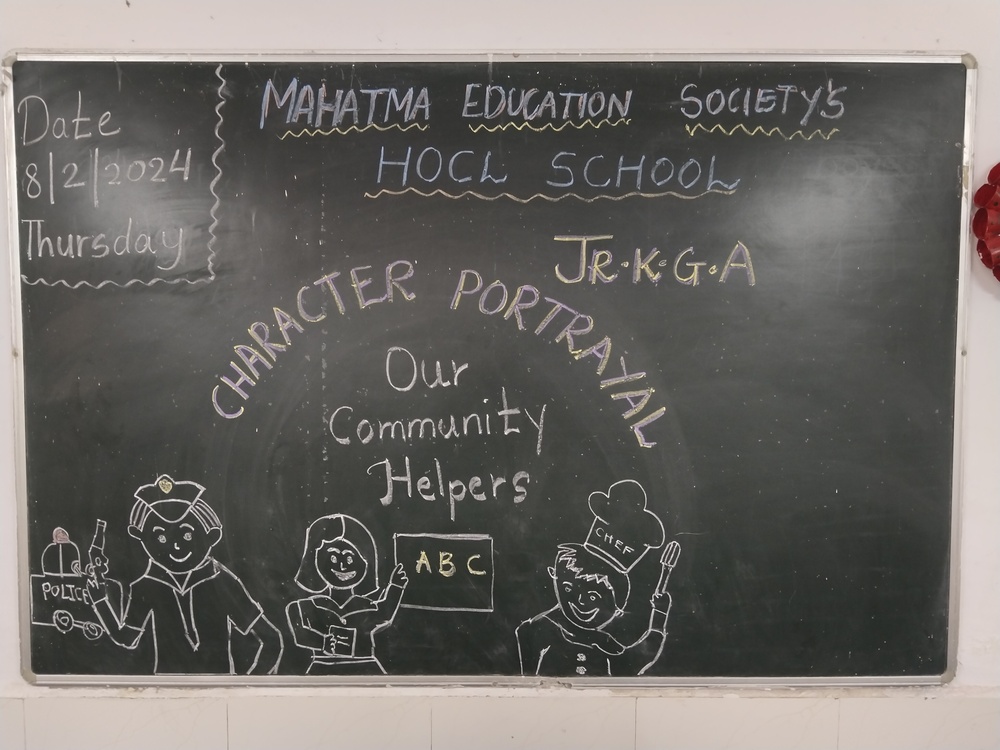 Date
8/2/2024
Thursday
MAHATMA EDUCATION SOCIETY'S
HOCL SCHOOL
JR.K.G.A
CHARACTER PORTRAYAL
Our
Community
Helpers
POLICE
A B C
CHEF